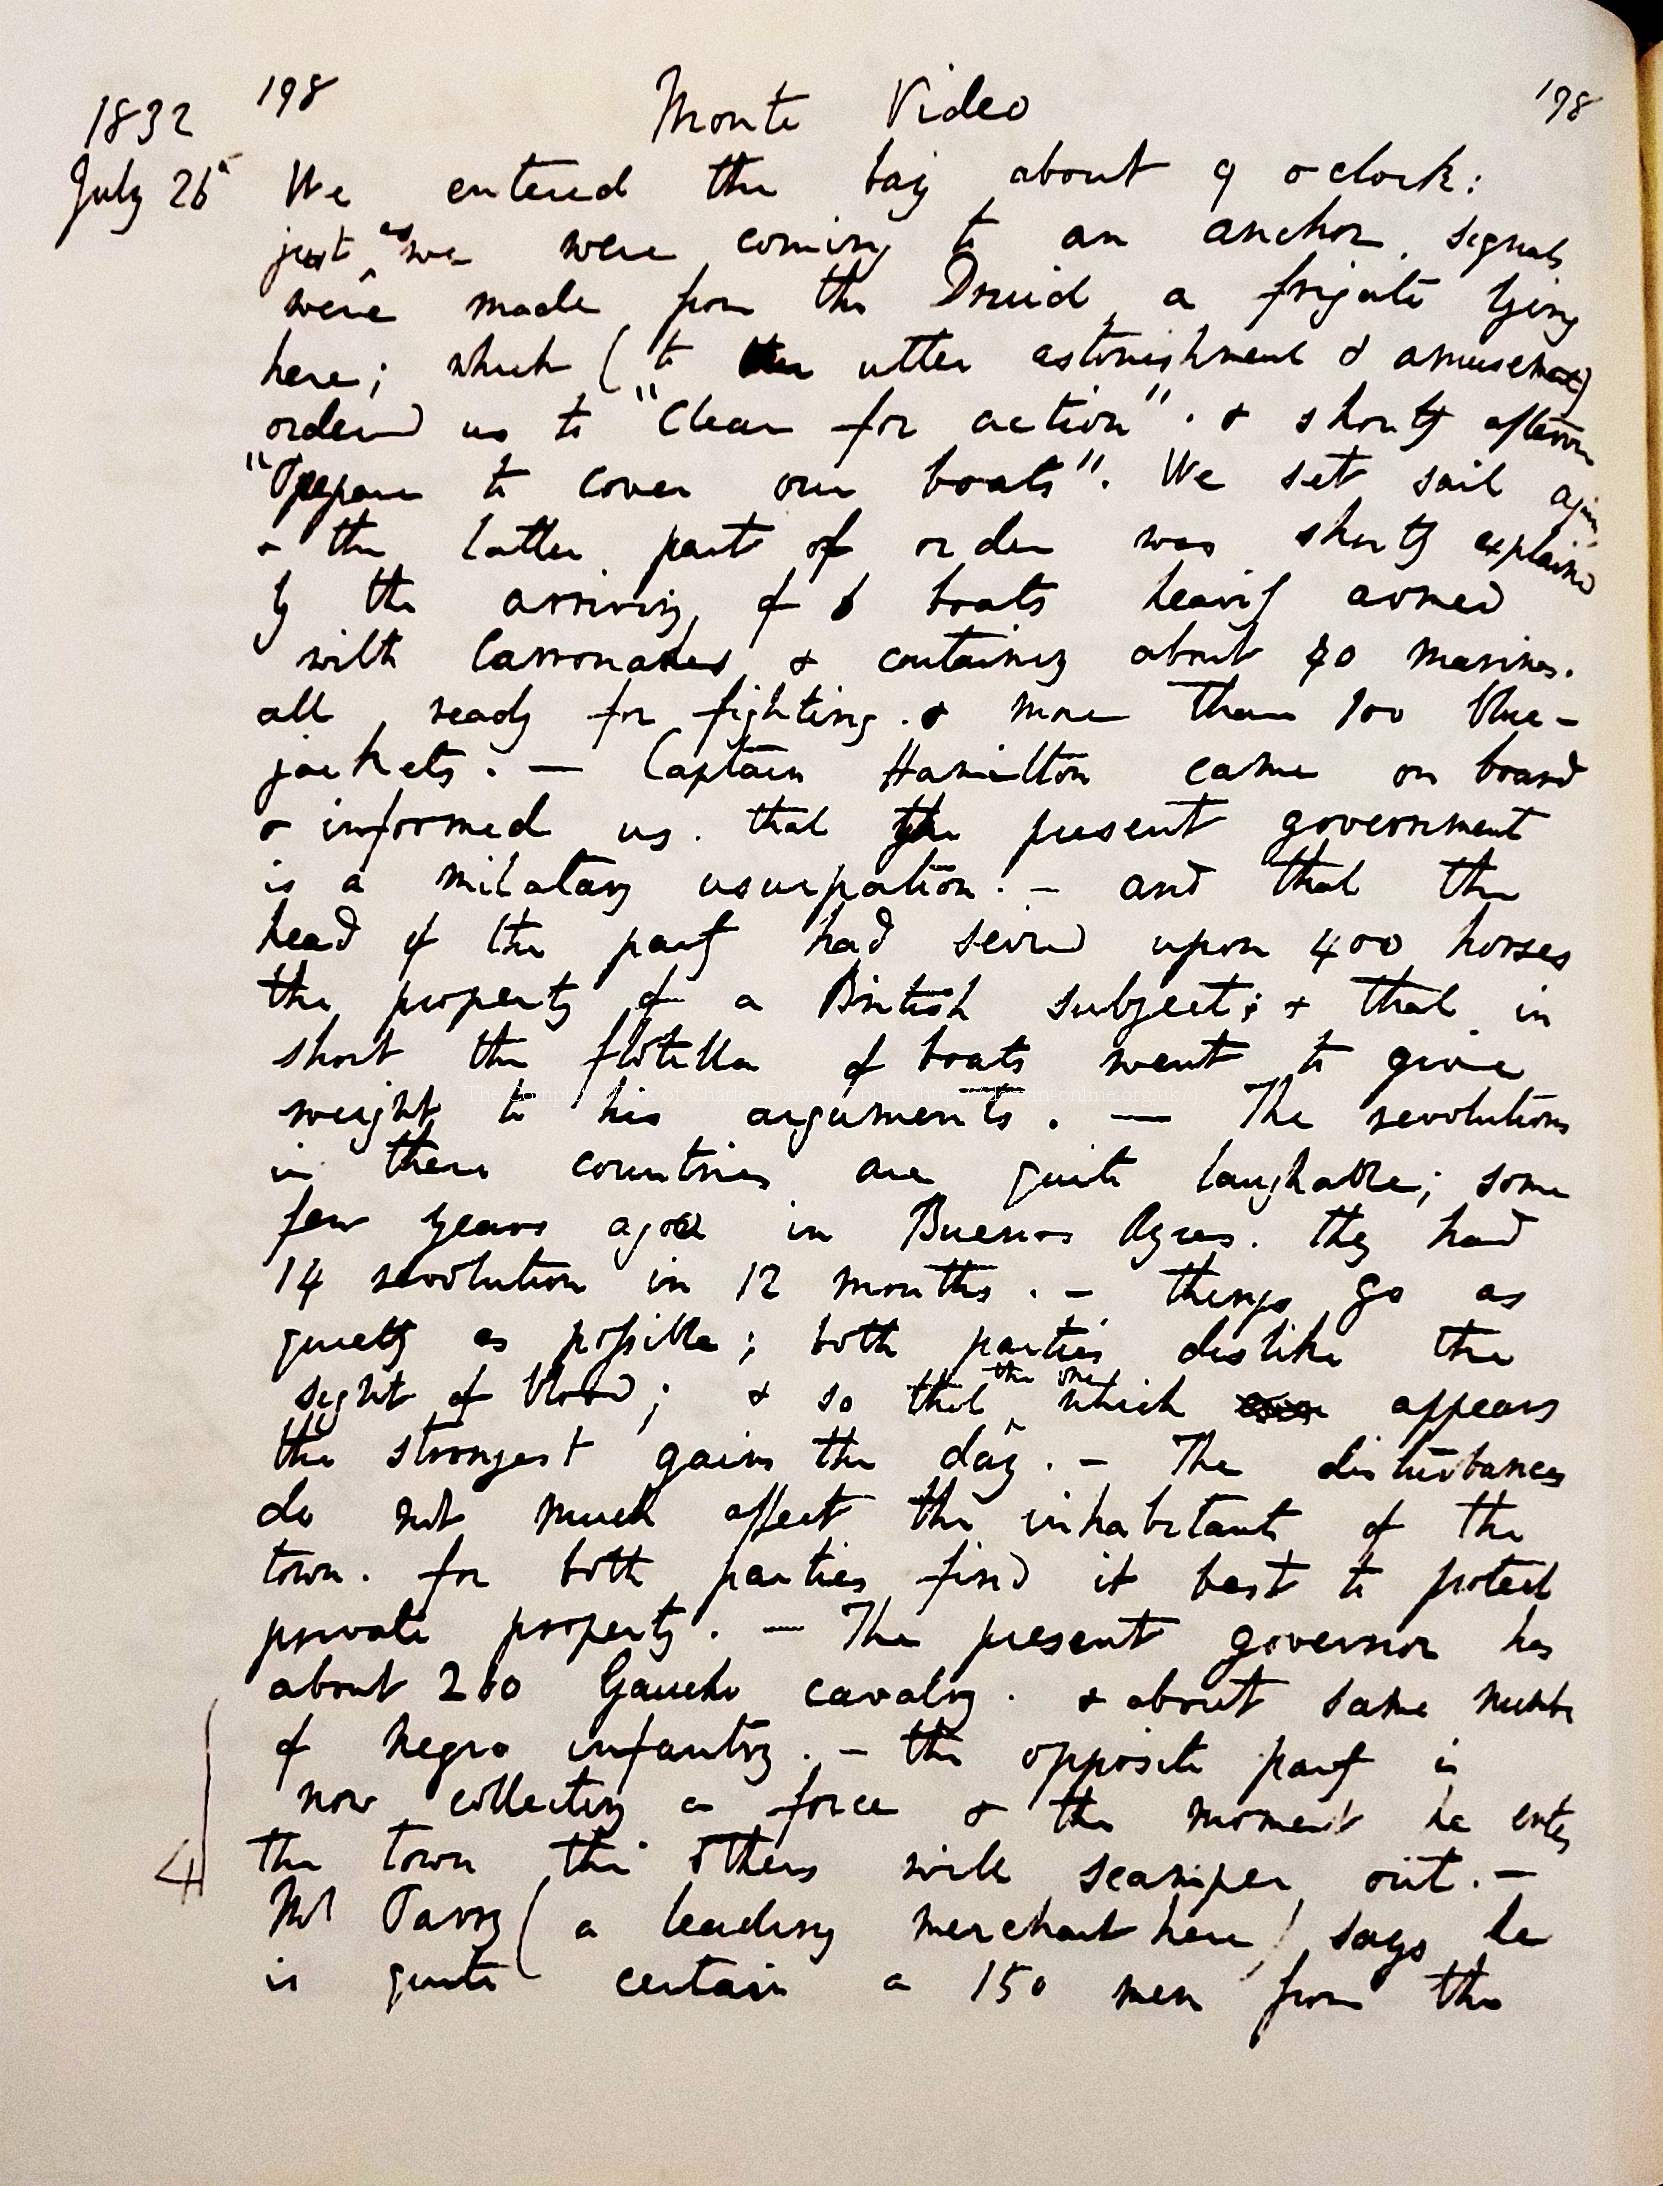 1832 198 Monte Video 198
July 26th We entered the bay about 9 oclock:
just as we were coming to an anchor, signals
were made from the Druid, a frigate lying
here; which (to our utter astonishment & amusement)
ordered us to "Clear for action" . & shortly afterwards
"Prepare to cover our boats". We set sail again
& the latter part of order was shortly explained
by the arriving of 6 boats heavily armed
with Carronades & containing about 40 marines.
all ready for fighting. & more than 100 blue-
jackets. — Captain Hamilton came on board
& informed us. that the present government
is a militatary usurpation. — and that the
head of the party had seized upon 400 horses
the property of a British subject; & that in
short the flotilla of boats went to give
weight to his arguments. — The revolutions
in these countries are quite laughable; some
few years ago in Buenos Ayres. they had
14 revolution in 12 months. — things go as
quietly as possible; both parties dislike the
sight of blood; & so that the one which appears
the strongest gains the day. — The disturbances
do not much affect the inhabitants of the
town. for both parties find it best to protect
private property. — The present governor has
about 260 Gaucho cavalry. & about same number
of Negro infantry. — the opposite party is
now collecting a force & the moment he enters
the town the others will scamper out. —
Mr Parry (a leading merchant here) says he
is quite certain a 150 men from the